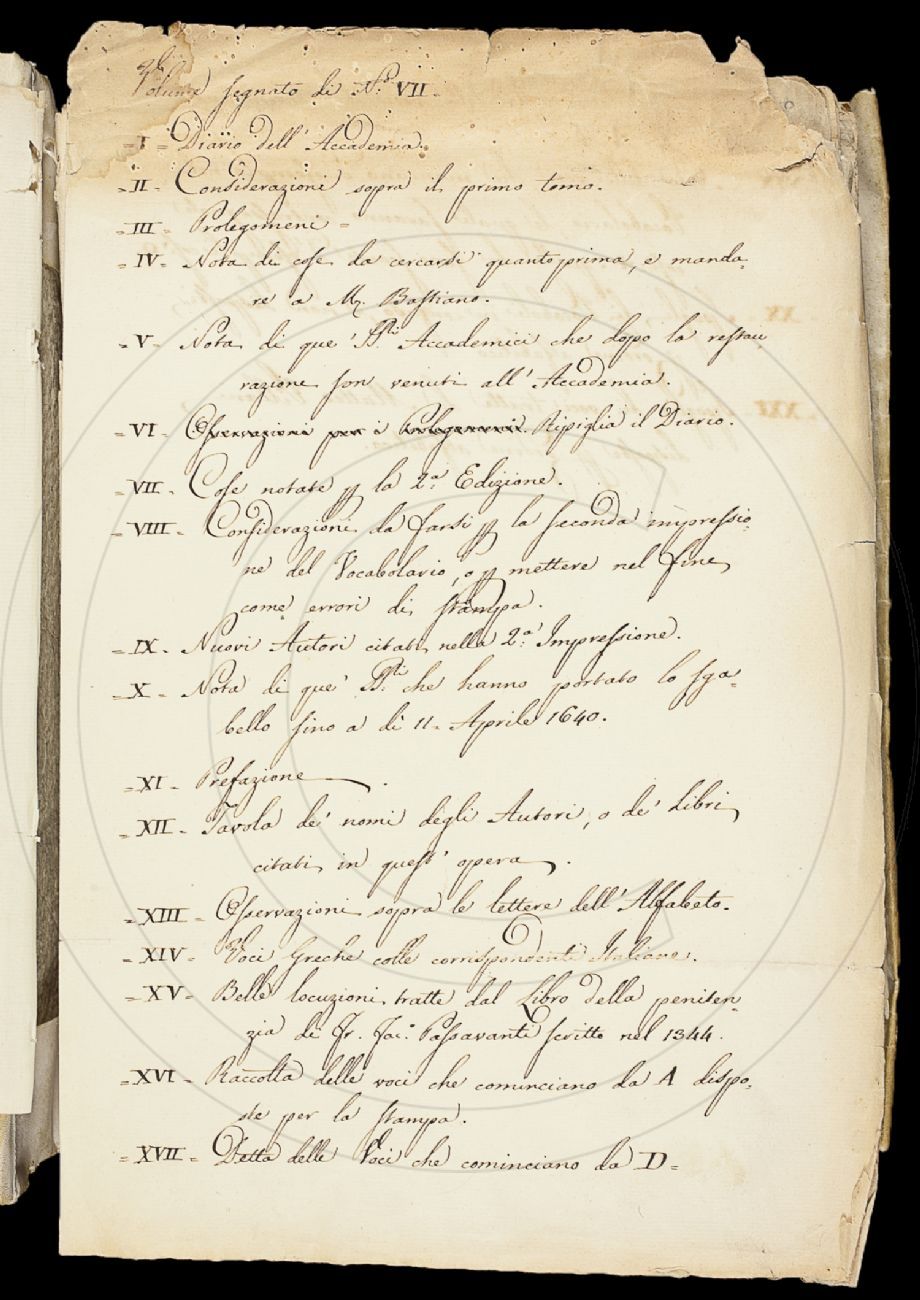 Volume segnato di N.º VII.
= I = Diario dell' Accademia.
= II = Considerazioni sopra il primo tomo.
= III = Prolegomeni =
= IV = Nota di cose da cercarsi quanto prima, e manda=
re a M. Bastiano.
= V = Nota di que' SS.ti Accademici che dopo la restau=
razione son venuti all' Accademia.
= VI = Osservazioni per i Prolegomeni. Ripiglia il Diario.
= VII = Cose notate p la 2.ª Edizione.
= VIII = Considerazioni da farsi p la seconda impressio=
ne del Vocabolario, o p mettere nel fine
come errori di stampa.
= IX = Nuovi Autori citati nella 2.ª Impressione.
= X = Nota di que' SS.ti che hanno portato lo sga=
bello fino a dì 11. Aprile 1640.
= XI = Prefazione
= XII = Tavola de' nomi degli Autori, o de' Libri
citati in quest' opera.
= XIII = Osservazioni sopra le lettere dell' Alfabeto.
= XIV = Voci Greche colle corrispondenti Italiane.
= XV = Belle locuzioni tratte dal Libro della peniten=
zia di Fr. Jac.º Passavanti scritto nel 1344.
= XVI = Raccolta delle voci che cominciano da A dispo=
ste per la stampa.
= XVII = Detta delle Voci che cominciano da D =